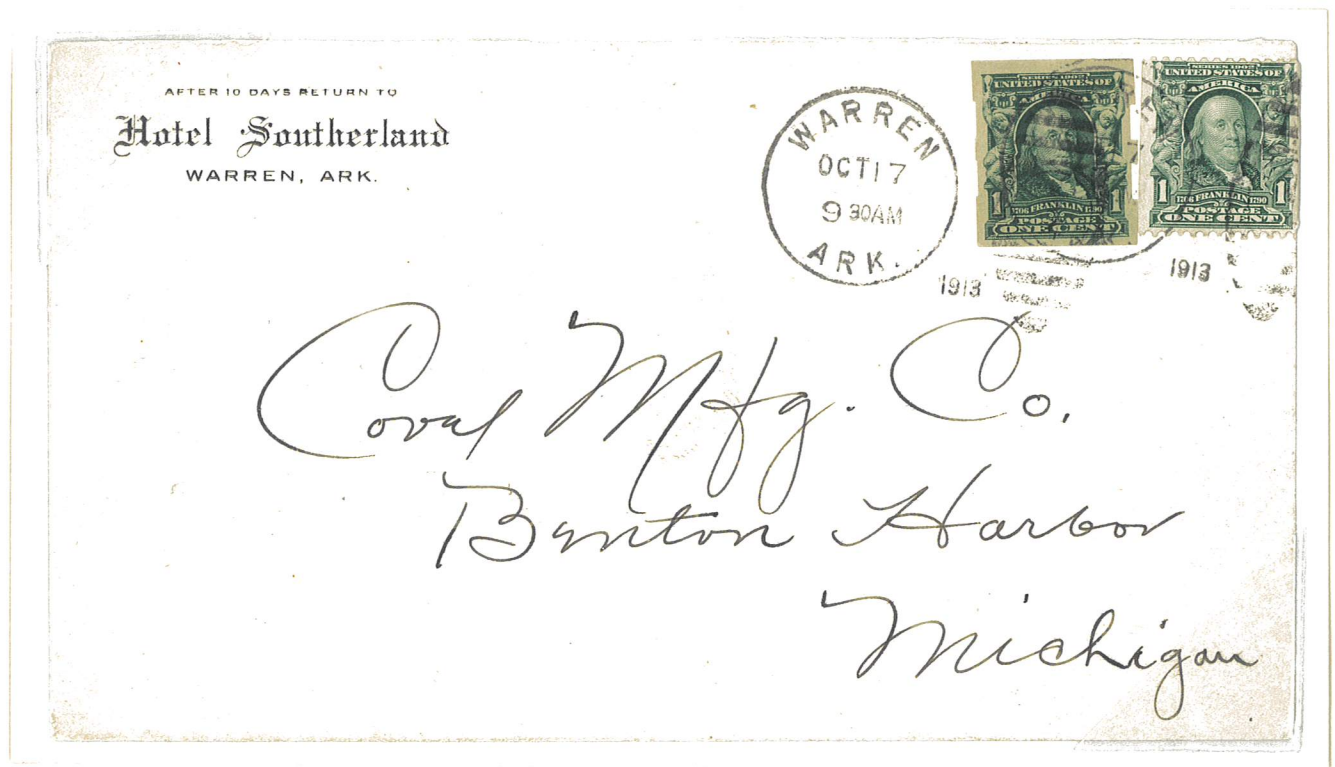 AFTER 10 DAYS RETURN TO
Hotel Southerland
WARREN, ARK.
WARREN
OCT 17
9 30AM
ARK.
1913
SERIES 1902
UNITED STATES OF
AMERICA
1 1
1706 FRANKLIN 1790
POSTAGE
ONE CENT
SERIES 1902
UNITED STATES OF
AMERICA
1 1
1706 FRANKLIN 1790
POSTAGE
ONE CENT
1913
Coval Mfg. Co.
Benton Harbor
Michigan